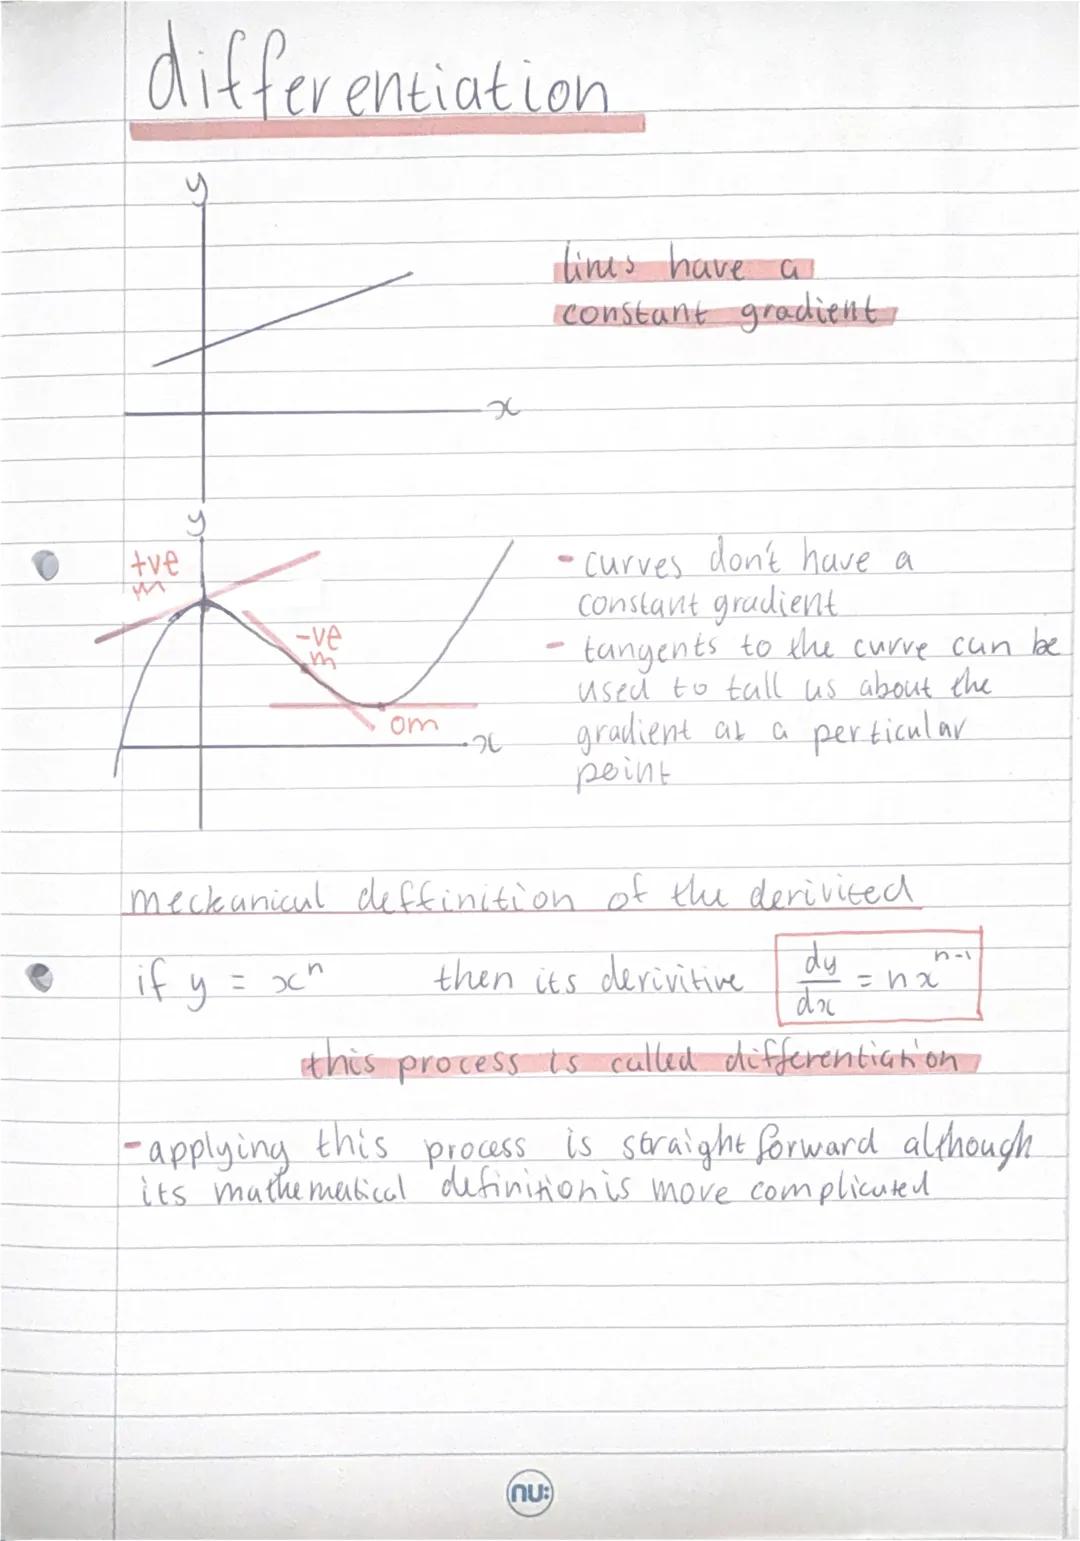 differentiation
y
lines have a
constant gradient
x
y
+ve
m
- curves don't have a
constant gradient
-ve
m
- tangents to the curve can be
used to tall us about the
gradient at a perticular
point
om
x
meckanical deffinition of the derivited
if y = xⁿ then its derivitive dy/dx = nxⁿ⁻¹
this process is called differentiation
- applying this process is straight forward although
its mathematical definition is more complicated
nu: